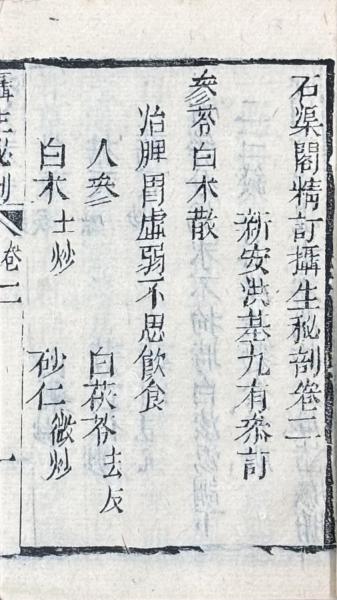 石渠閣精訂攝生秘剖卷二
新安洪基九有叅訂
參苓白朮散
治脾胃虛弱不思飲食
人參　白茯苓去皮
白朮土炒　砂仁微炒
攝生秘剖　卷二　一